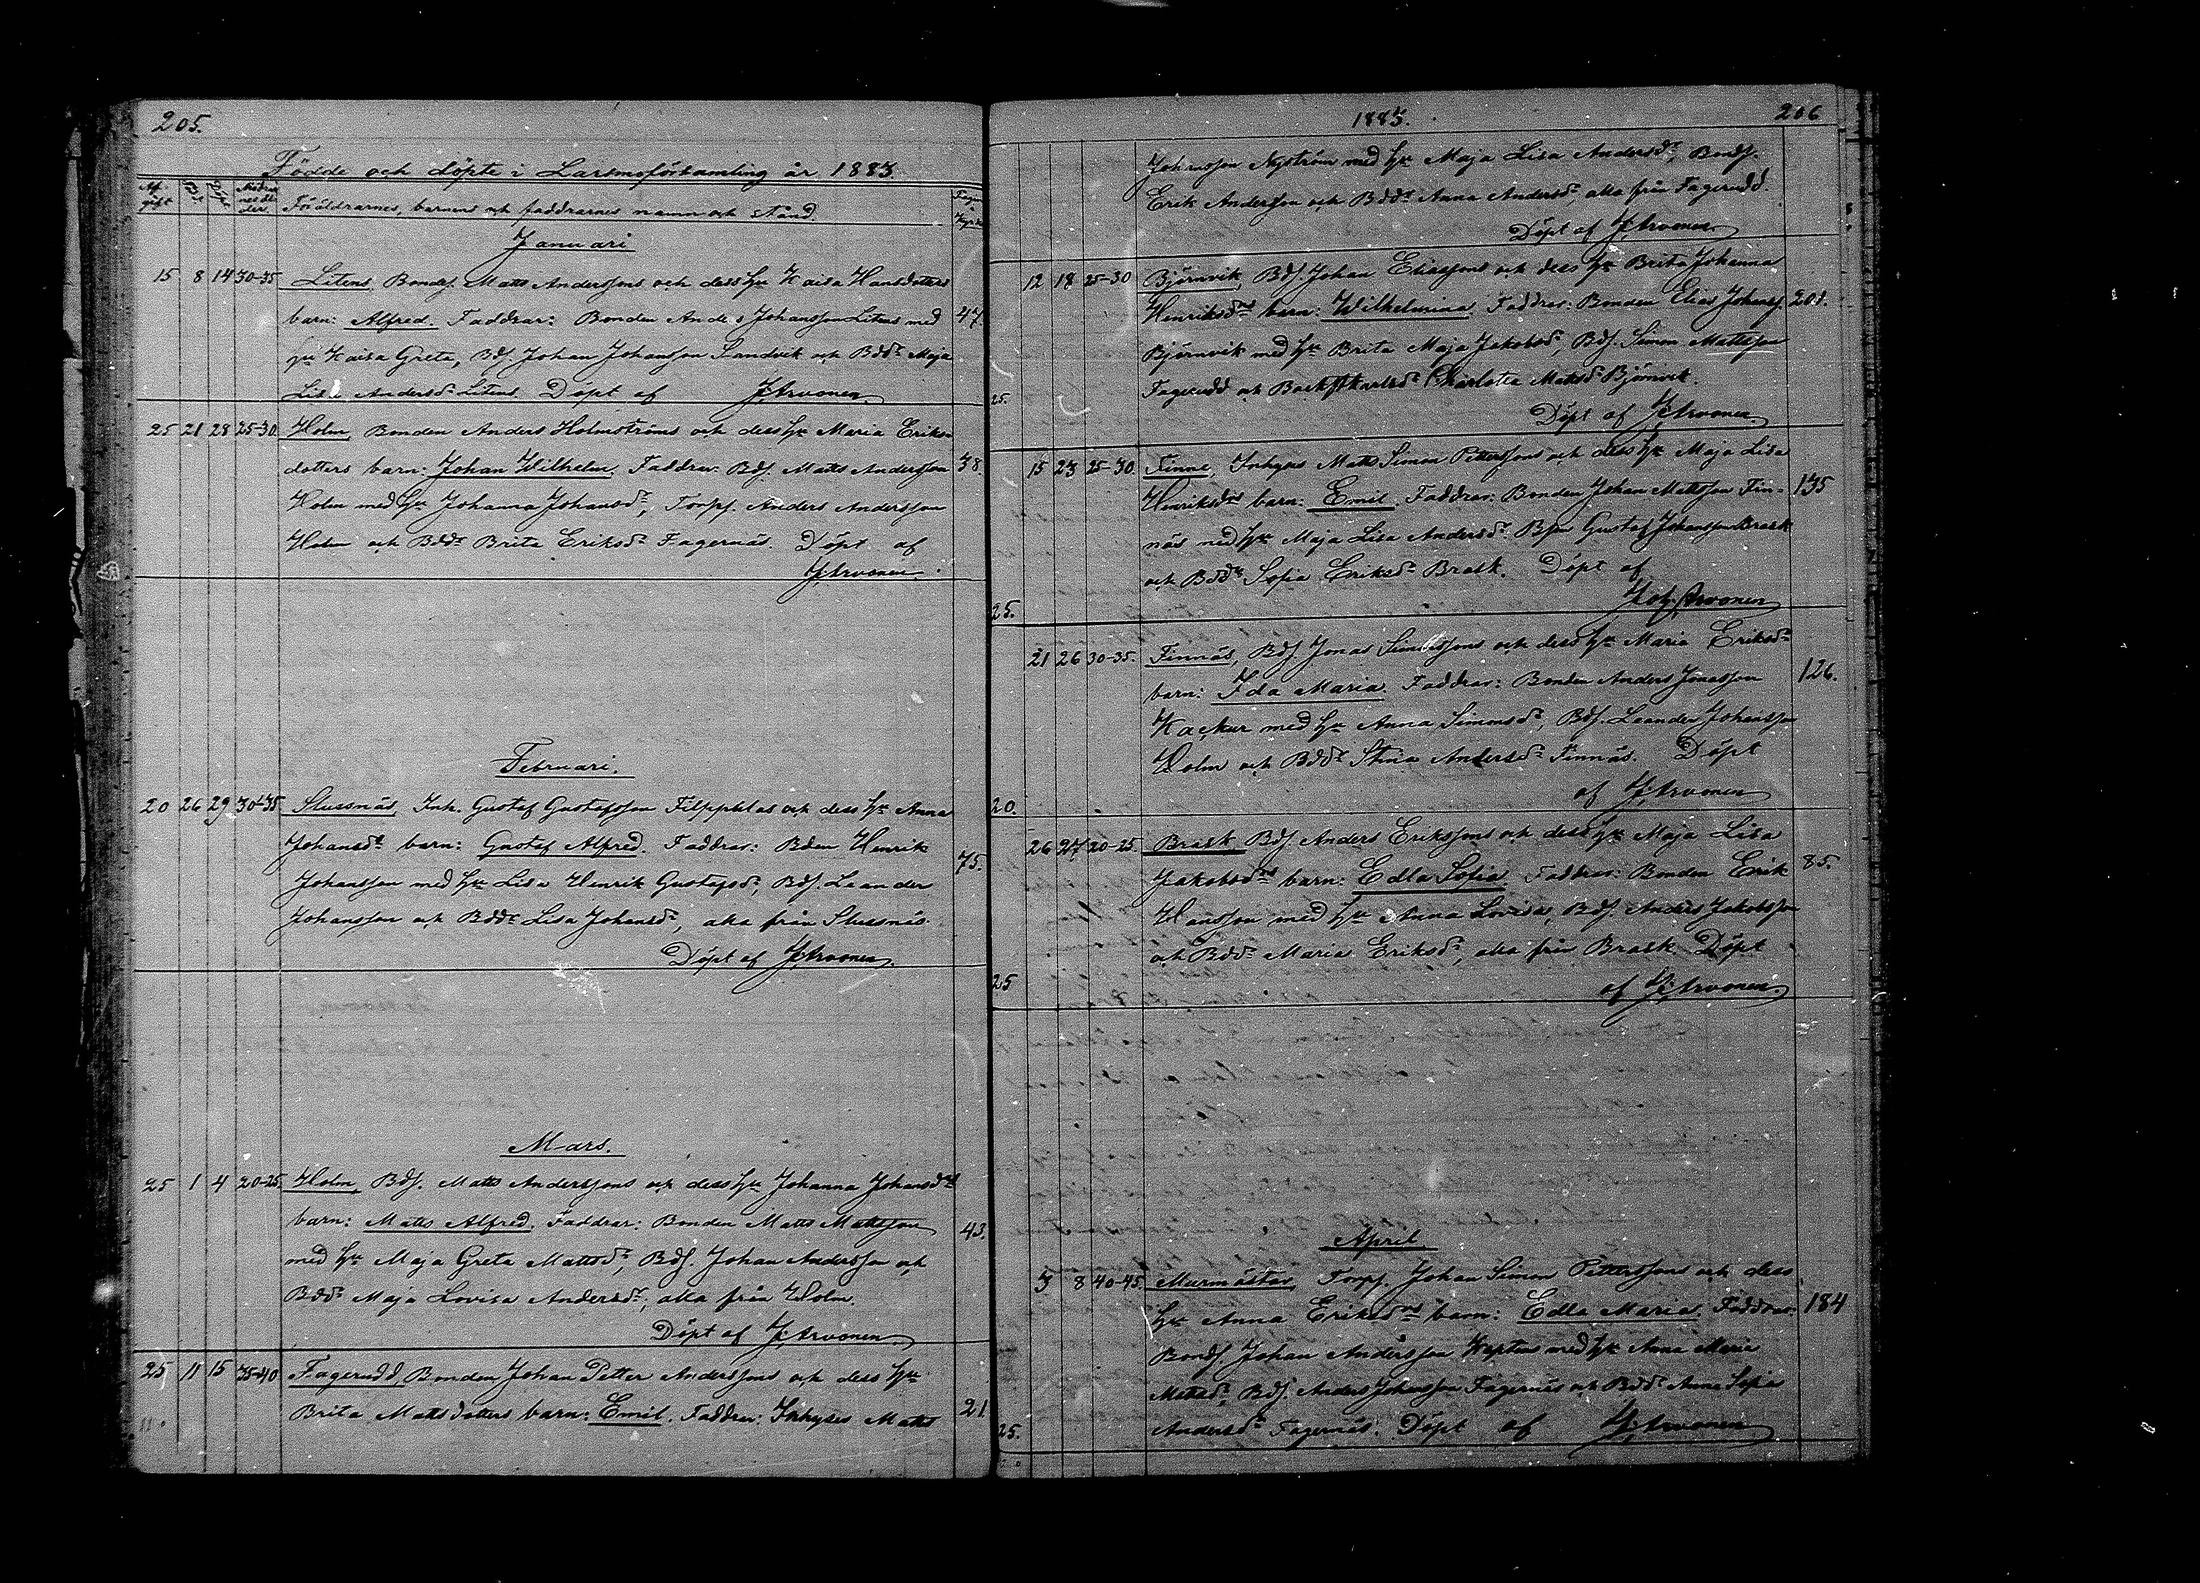 205.
Födde och döpte i Larsmo församling år 1883
Föräldrarnes, barnens och faddrarnes namn och stånd.
Januari
15 8 14 30-35 Litens, Bondes. Matts Anderssons och dess hu Kaisa Hansdotters
barn: Alfred. Faddrar: Bonden Anders Johansson Litens med 47.
hu Kaisa Greta, Bds. Johan Johansson Sandvik och Bdd. Maja
Lisa Andersd. Litens. Döpt af J. Arvonen.
25 21 28 25-30. Holm, Bonden Anders Holmströms och dess hu Maria Eriks-
dotters barn: Johan Wilhelm. Faddrar: Bds. Matts Andersson 38.
Holm med hu Johanna Johansd., Torps. Anders Andersson
Holm och Bdd. Brita Eriksd. Fagernäs. Döpt af
J. Arvonen.
Februari.
20 26 29 30-35 Slussnäs, Inh. Gustaf Gustafsson Filppulas och dess hu Anna
Johansd. barn: Gustaf Alfred. Faddrar: Bden Henrik
Johansson med hu Lisa Henrik Gustafsd., Bds. Leander 75.
Johansson och Bdd. Lisa Johansd., alla från Slussnäs.
Döpt af J. Arvonen.
Mars.
25 1 4 20-25. Holm, Bds. Matts Anderssons och dess hu Johanna Johansd.
barn: Matts Alfred. Faddrar: Bonden Matts Mattsson 43.
med hu Maja Greta Mattsd., Bds. Johan Andersson och
Bdd. Maja Lovisa Andersd., alla från Holm.
Döpt af J. Arvonen.
25 11 15 35-40 Fagerudd, Bonden Johan Petter Anderssons och dess hu
Brita Mattsdotters barn: Emil. Faddrar: Inhyses Matts 21
1885. 206
Johansson Nyström med hu Maja Lisa Andersd., Bonds.
Erik Andersson och Bdd. Anna Andersd., alla från Fagerudd.
Döpt af J. Arvonen.
12 18 25-30 Björnvik, Bds. Johan Eliassons och dess hu Brita Johanna
Henriksd. barn: Wilhelmina. Faddrar: Bonden Elias Johanss. 201.
Björnvik med hu Brita Maja Jakobsd., Bds. Simon Mattsson
Fagerudd och Charlotta Mattsd. Björnvik.
25. Döpt af J. Arvonen.
15 23 25-30. Finne, Inhyses Matts Simon Petterssons och dess hu Maja Lisa
Henriksd. barn: Emil. Faddrar: Bonden Johan Mattsson Fin- 135
näs med hu Maja Lisa Andersd. Bson Gustaf Johansson Brask
och Bdd. Sofia Eriksd. Brask. Döpt af
25. Joh. Arvonen
21 26 30-35. Finnäs, Bds. Jonas Simonssons och dess hu Maria Eriksd.
barn: Ida Maria. Faddrar: Bonden Anders Jonasson 126.
Kackur med hu Anna Simonsd., Bds. Leander Johansson
Holm och Bdd. Stina Andersd. Finnäs. Döpt
20. af J. Arvonen
26 27 20-25. Brask, Bds. Anders Erikssons och dess hu Maja Lisa
Jakobsd. barn: Edla Sofia. Faddrar: Bonden Erik 85.
Hansson med hu Anna Lovisa, Bds. Anders Jakobsson
och Bdd. Maria Eriksd., alla från Brask. Döpt
25 af J. Arvonen.
April.
3 8 40-45. Murmästas, Torps. Johan Simon Petterssons och dess
hu Anna Eriksd. barn: Edla Maria. Faddrar: 184
Bonds. Johan Andersson med hu Anna Maria
Mattsd., Bds. Anders Johansson Fagernäs och Bdd. Anna Sofia
25. Andersd. Fagernäs. Döpt af J. Arvonen